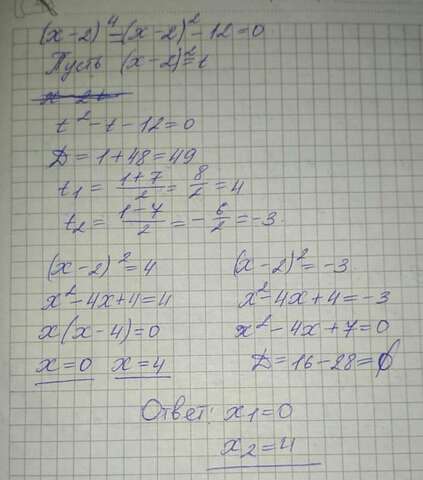 (x-2)⁴-(x-2)²-12=0
Пусть (x-2)²=t
t²-t-12=0
D=1+48=49
t₁=(1+7)/2=8/2=4
t₂=(1-7)/2=-6/2=-3.
(x-2)²=4
x²-4x+4=4
x(x-4)=0
x=0 x=4
(x-2)²=-3
x²-4x+4=-3
x²-4x+7=0
D=16-28=
Ответ: x₁=0
x₂=4